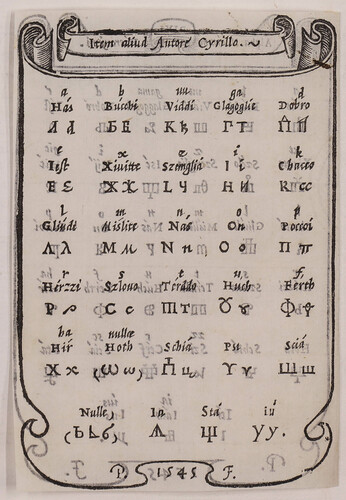 Item aliud Autore Cyrillo.
a b uu ga d
Hás Bucchi Viddi Glagoglie Dobro
Л д Б Б К к Г Т Д П
e x z i k
Iest Xiuitte Szemglia I i Chacco
Е Є Ж Ж Ꙁ Ч Н И К сс
l m n o p
Gliudi Mislite Nás On Poccoi
Л л М м N n О о П п
r s t u f
Herzzi Szlouo Terddo Huch Ferth
Р С с Ш т Ꙋ Ф
ha nullæ
Hir Hoth Schiá Psi Sciá
Х х (Ѡ ѡ) Ц ц Ү ү Ш ш
Nulle Ia Stá iú
(Ь Ꙏ Ѣ) Ѧ Щ ү ү.
P. 1545 F.